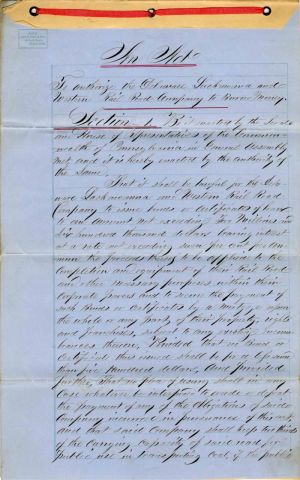 An Act
To authorize the Delaware Lackawanna and
Western Rail Road Company to Borrow Money.
Section 1. Be it enacted by the Senate
and House of Representatives of the Common-
wealth of Pennsylvania in General Assembly
met and it is hereby enacted by the authority of
the same,
That it shall be lawful for the Dela-
ware Lackawanna and Western Rail Road
Company to issue bonds or certificates of loan
to an amount not exceeding Two Millions
Six hundred thousand dollars bearing interest
at a rate not exceeding seven per cent per an-
num the proceeds thereof to be applied to the
completion and equipment of their Rail Road
and other necessary purposes within their
corporate powers and to secure the payment of
such bonds or certificates by a mortgage upon
the whole or any part of their property rights
and franchises, subject to any existing incum-
brances thereon, Provided that no bond or
certificate thus issued shall be for a less sum
than five hundred dollars. And provided
further, That no plea of usury shall in any
case whatever be interposed to evade or defeat
the payment of any of the obligations of said
Company incurred in pursuance of this act,
and that said Company shall keep two thirds
of the carrying capacity of said road for
public use in transporting coal, if the public